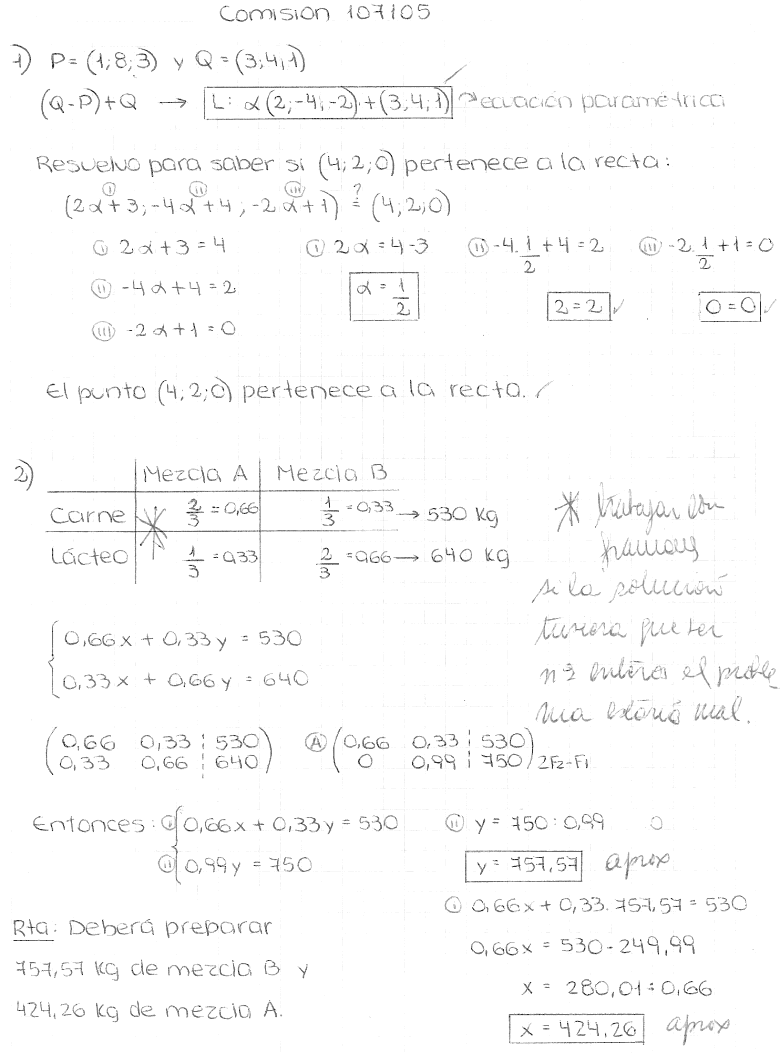 Comisión 107105
1) P = (1; 8; 3) y Q = (3; 4; 1)
(Q-P)+Q → L: α(2; -4; -2) + (3; 4; 1) → ecuación paramétrica
Resuelvo para saber si (4; 2; 0) pertenece a la recta:
(2α+3; -4α+4; -2α+1) ≟ (4; 2; 0)
(I) (II) (III)
(I) 2α+3 = 4 (I) 2α = 4-3 (II) -4. 1/2 + 4 = 2 (III) -2. 1/2 + 1 = 0
(II) -4α+4 = 2 α = 1/2 2 = 2 ✓ 0 = 0 ✓
(III) -2α+1 = 0
El punto (4; 2; 0) pertenece a la recta. ✓
2) Mezcla A Mezcla B
Carne 2/3 = 0,66 1/3 = 0,33 → 530 Kg
Lácteo 1/3 = 0,33 2/3 = 0,66 → 640 Kg
* trabajar con
si la solución
tuviera que ser
nº enteros el proble
ma estaría mal.
0,66x + 0,33y = 530
0,33x + 0,66y = 640
(0,66 0,33 ¦ 530) (A) (0,66 0,33 ¦ 530)
(0,33 0,66 ¦ 640) (0 0,99 ¦ 750) 2F2-F1
Entonces: (I) 0,66x + 0,33y = 530 (II) y = 750 : 0,99
(II) 0,99y = 750 y = 757,57 aprox
(I) 0,66x + 0,33. 757,57 = 530
Rta: Deberá preparar 0,66x = 530 - 249,99
757,57 Kg de mezcla B y x = 280,01 ÷ 0,66
424,26 Kg de mezcla A. x = 424,26 aprox